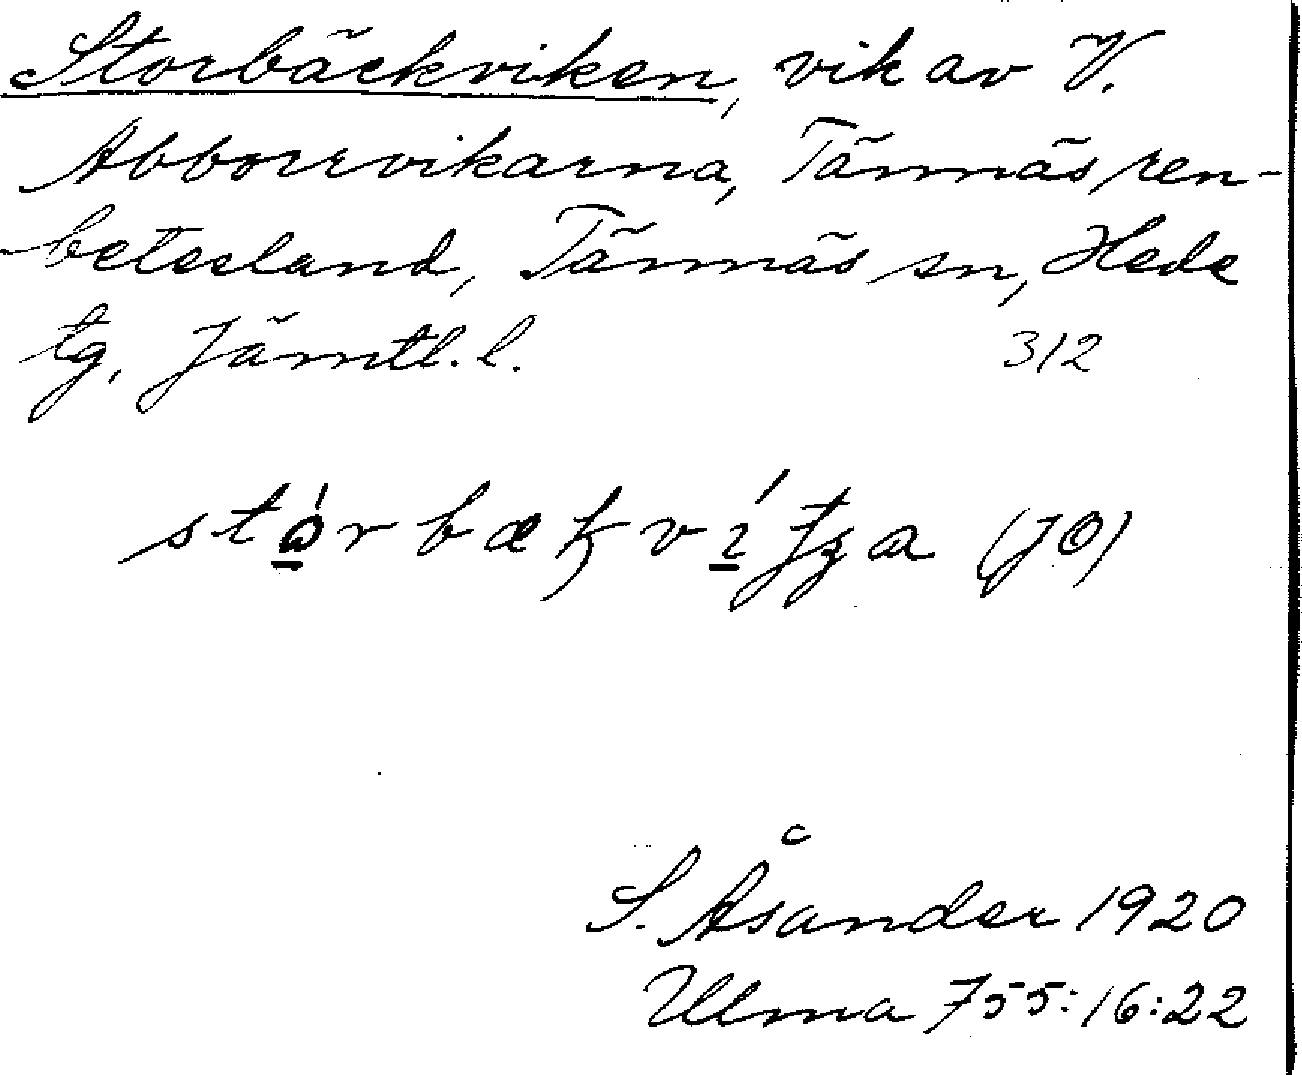 Storbäckviken, vik av V.
Abborrvikarna, Tännäs ren-
betesland, Tännäs sn, Hede
tg, Jämtl. l. 312
(JO)
S. Åsander 1920
Ulma 755:16:22